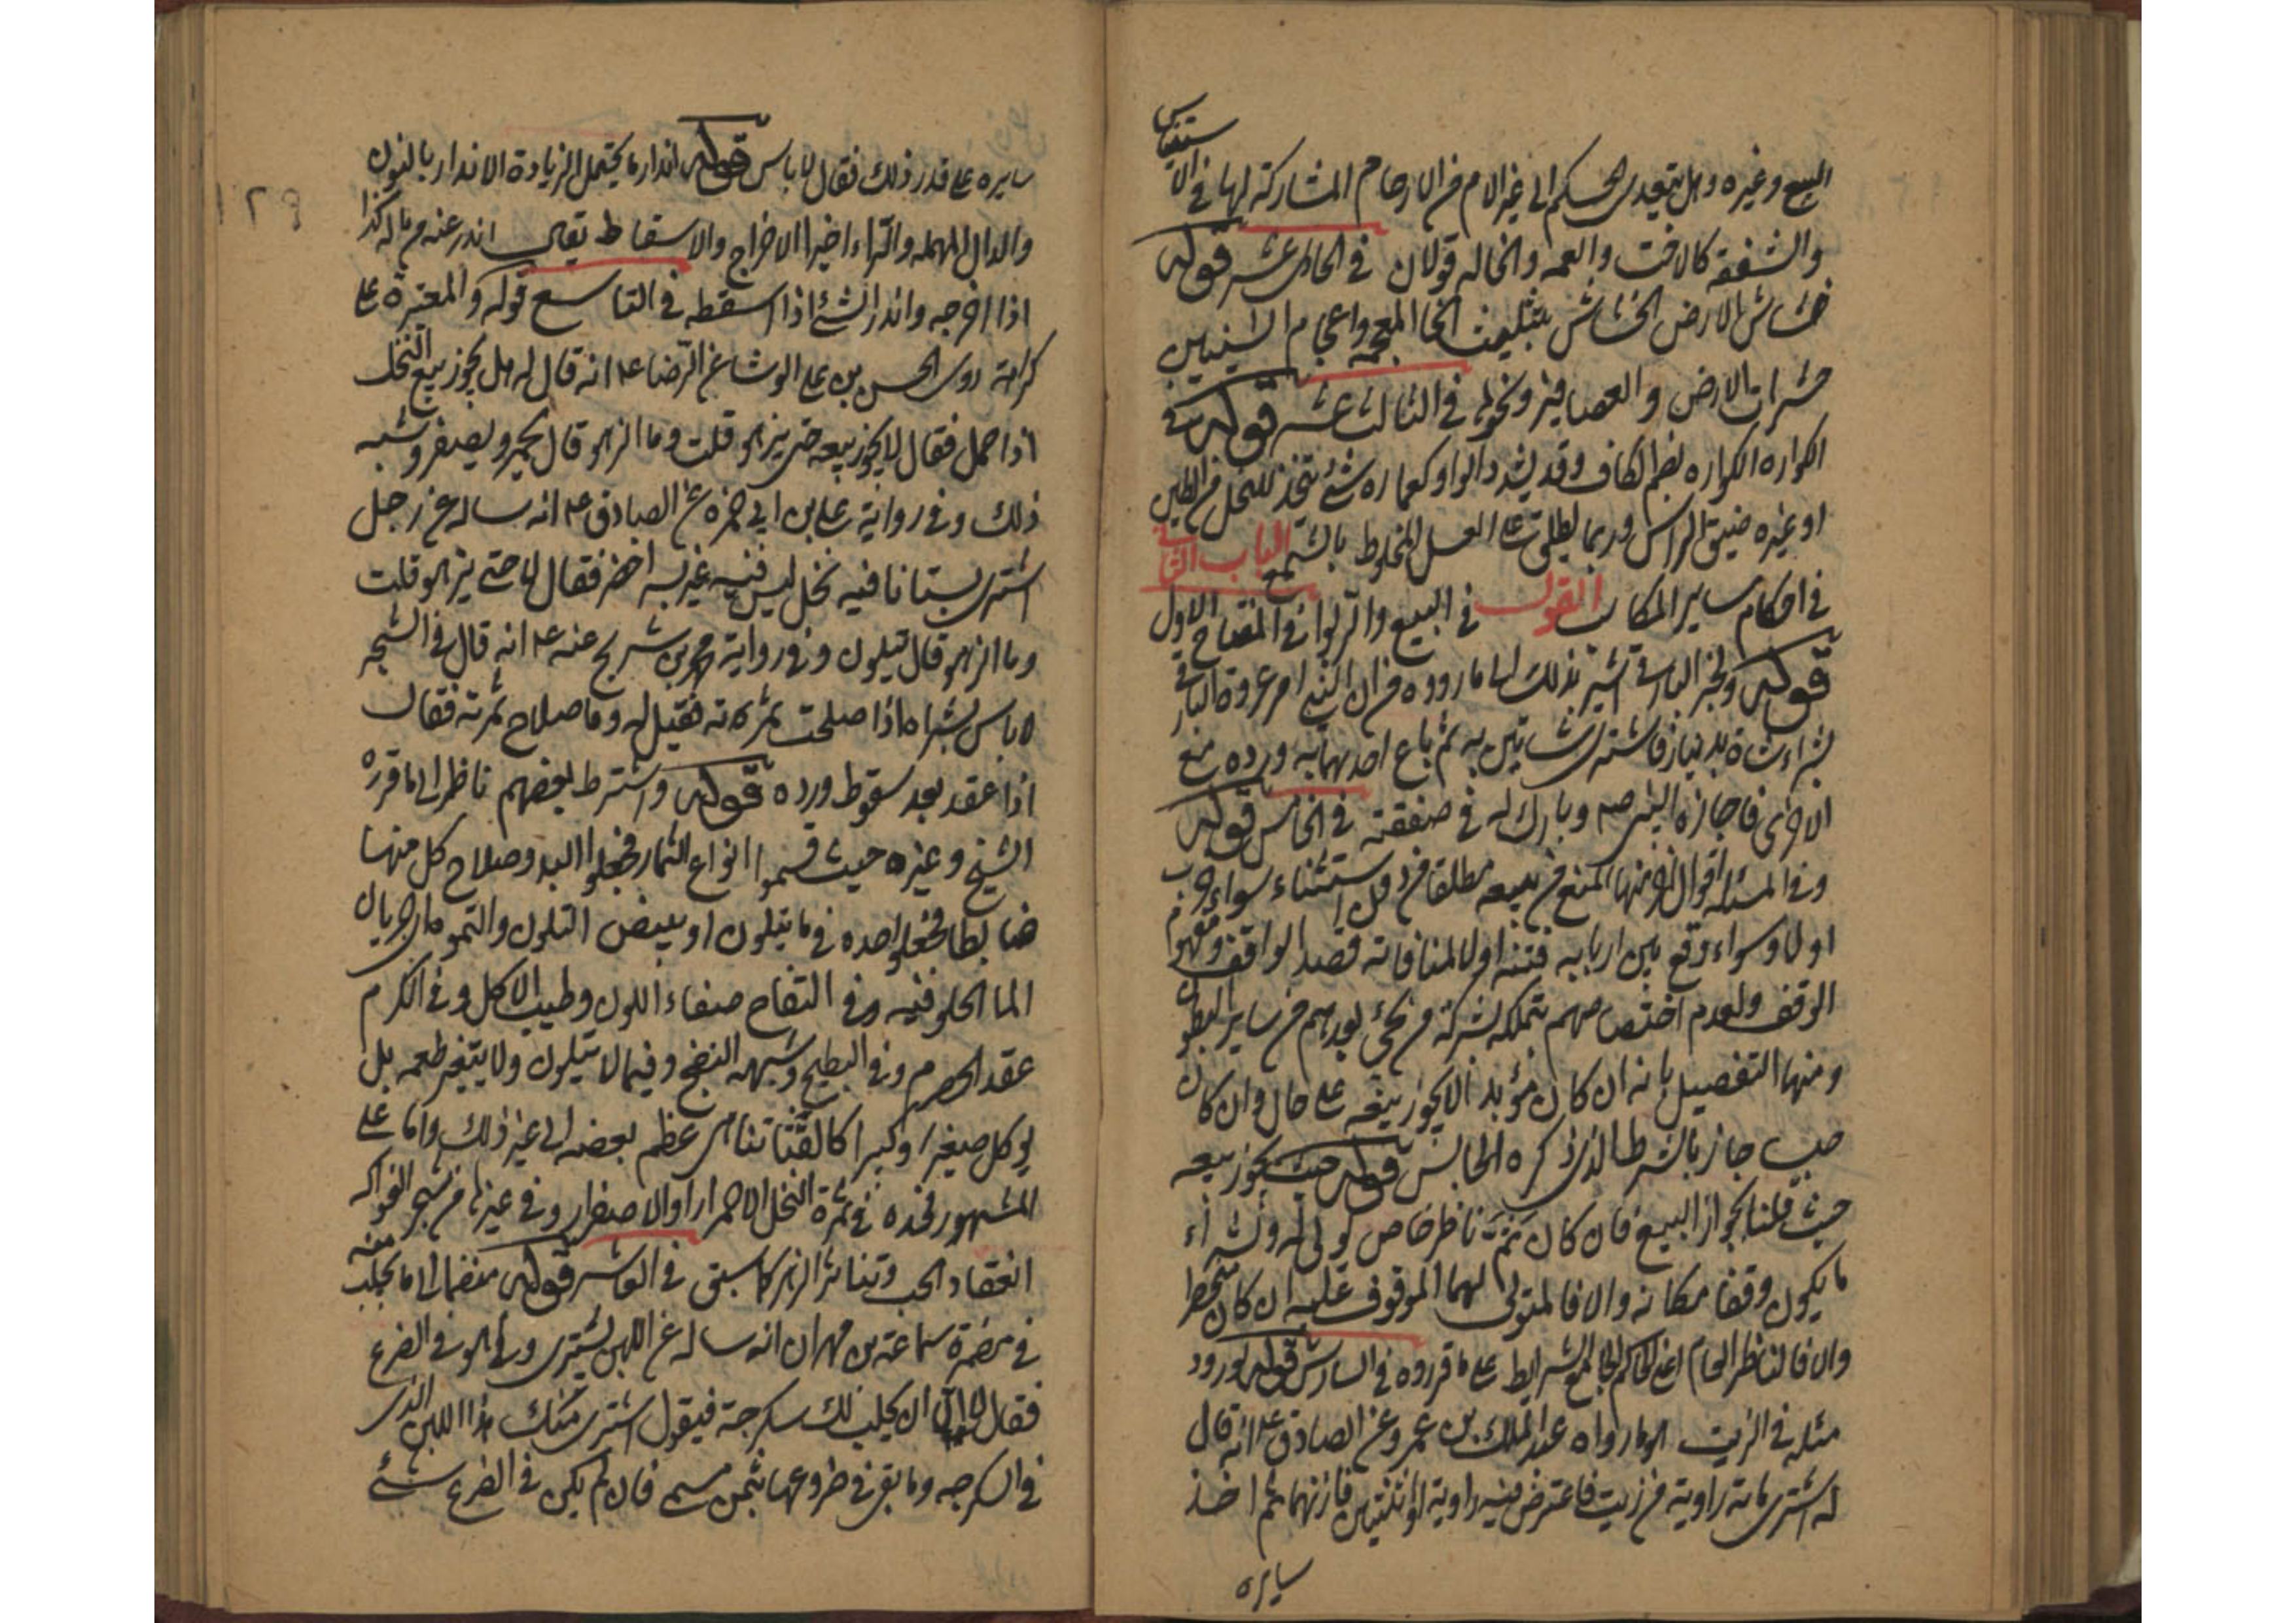 البيع وغيره وهل يتعدى الحكم الى غير الام من الارحام المشاركة لها في الا
ستيناس
والشفقة كالاخت والعمه والخاله قولان في الحادى عشر قوله
خشاش الارض الخشاش بتثليث الخا المعجمه واعجام الشينين
حشرات الارض والعصافير ونحوها في الثالث عشر قوله في
الكواره الكواره بضم الكاف وقد يشدد الواو كعماره شئ يتخذ للنحل من الطين
او غيره ضيق الراس وربما يطلق على العسل المخلوط بالشمع الباب الثانى
في احكام ساير المكاسب القول في البيع والربوا في المفتاح الاول
قوله ولخبر البارقى اشير بذلك الى ما رووه من ان النبي امر عروة البارقى
بشراء شاة بدينار فاشترى شاتين به ثم باع احديهما به ورده مع
الاخرى فاجازه النبى صه وبارك له في صفقته في الخامس قوله
وفي المسئله اقوال اخر منها المنع من بيعه مطلقا من دون استثناء سواء خرب
او لا وسواء وقع بين اربابه فتنه او لا لمنافاته قصد الواقف ومفهوم
الوقف ولعدم اختصاصهم بتملكه لشركة من يجئ بعدهم من ساير البطون
ومنها التفصيل بانه ان كان مؤبدا لا يجوز بيعه على حال وان كان
جاز بالشرط الذى ذكره قوله حيث يجوز بيعه
حيث قلنا بجواز البيع فان كان ثمة ناظر خاص تولى له وشراء
ما يكون وقفا مكانه والا فالمتولى لهما الموقوف عليه ان كان
والا فالناظر العام اعنى الحاكم الجامع للشرايط على ما قرروه في السادس قوله لورود
مثله في الزيت هو ما رواه عبد الملك بن عمرو عن الصادق ع انه قال
له اشترى مائة راوية من زيت فاعترض فيه راوية او اثنتين فازنهما ثم اخذ
سايره
سايره على قدر ذلك فقال لا باس قوله اندار ما يحتمل الزيادة الاندار بالنون
والدال المهمله والراء اخيرا الاخراج والاسقاط يقال اندر عنه من ماله كذا
اذا اخرجه واندر الشئ اذا اسقطه في التاسع قوله والمعتبرة على
كراهته روى الحسن بن على الوشا عن الرضا ع انه قال له هل يجوز بيع النخل
اذا حمل فقال لا يجوز بيعه حتى يزهو قلت وما الزهو قال يحمر ويصفر وشبه
ذلك وفي رواية على بن ابي حمزه عن الصادق ع انه ساله عن رجل
اشترى بستانا فيه نخل ليس فيه غير بسر اخضر فقال لا حتى يزهو قلت
وما الزهو قال يتلون وفي رواية محمد بن شريح عنه ع انه قال في الشجر
لا باس بشراه اذا صلحت ثمرته فقيل له وما صلاح ثمرته فقال
اذا عقد بعد سقوط ورده قوله واشترط بعضهم ناظر الى ما قرره
الشيخ وغيره حيث قسموا انواع الثمار فجعلوا البدو صلاح كل منها
ضابطا فجعلوا حده في ما يتلون او يبيض التلون والتموه اى جريان
الما الحلو فيه وفي التفاح صفاء اللون وطيب الاكل وفي الكرم
عقد الحصرم وفي البطيخ وشبهه النضج وفيما لا يتلون ولا يتغير طعمه بل
يوكل صغيرا وكبيرا كالقثا تناهى عظم بعضه الى غير ذلك واما على
المشهور فحده في ثمرة النخل الاحمرار او الاصفرار وفي غيرها من شجر الفواكه
انعقاد الحب وتناثر الزهر كما سبق في العاشر قوله منضما الى ما يحلب منه
في مضمرة سماعة بن مهران انه ساله عن اللبن يشترى وهو في الضرع
فقال لا الا ان يحلب لك سكرجة فيقول اشترى منك هذا اللبن الذى
في السكرجه وما بقى في ضروعها بثمن مسمى فان لم يكن في الضرع شئ